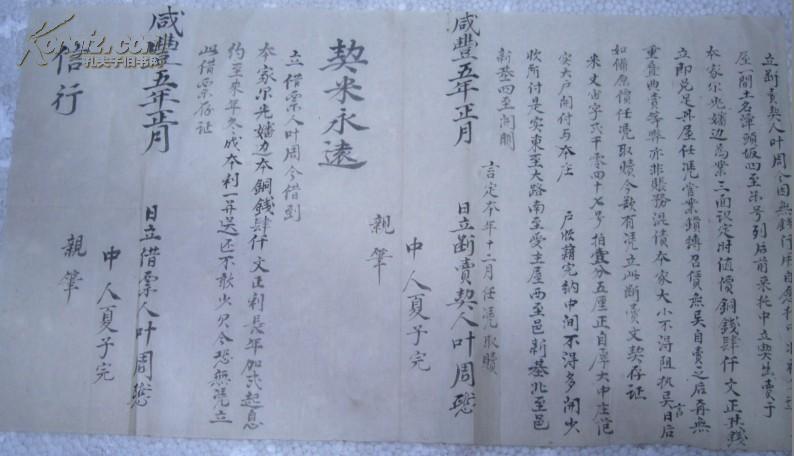 立斷賣契人叶周今因無錢行用自愿
屋一間土名潭頭坂四至米号列后前来托中立契出賣于
本家尔光嬸边爲業三面议定时值價銅錢肆仟文正其錢
立即兑足其屋任凴管業鎖鑰召價無異自賣之后再無
重直典賣等弊亦非賬務准债本家大小不得阻执异言日后
如備原價任凴取贖今欲有凴立此断賣文契存証
来丈宙字弍千零四十七号拍壹分五厘正自厚大中庄
实大戶開付与本庄 戶收籍完納中间不得多開少
收所付是实東至大路南至受主屋西至邑新基北至邑
新基四至開明
言定本年十二月任凴取贖
咸豐五年正月 日立斷賣契人叶周懸
中人夏子完
親筆
契米永遠
立借票人叶周今借到
本家尔光嬸边本銅錢肆仟文正利長年加弍起息
約至来年冬成本利一并送还不敢少欠今恐無凴立
此借票存证
咸豐五年正月 日立借票人叶周懸
中人夏子完
親筆
信行
Kongfz.com
孔夫子旧书网